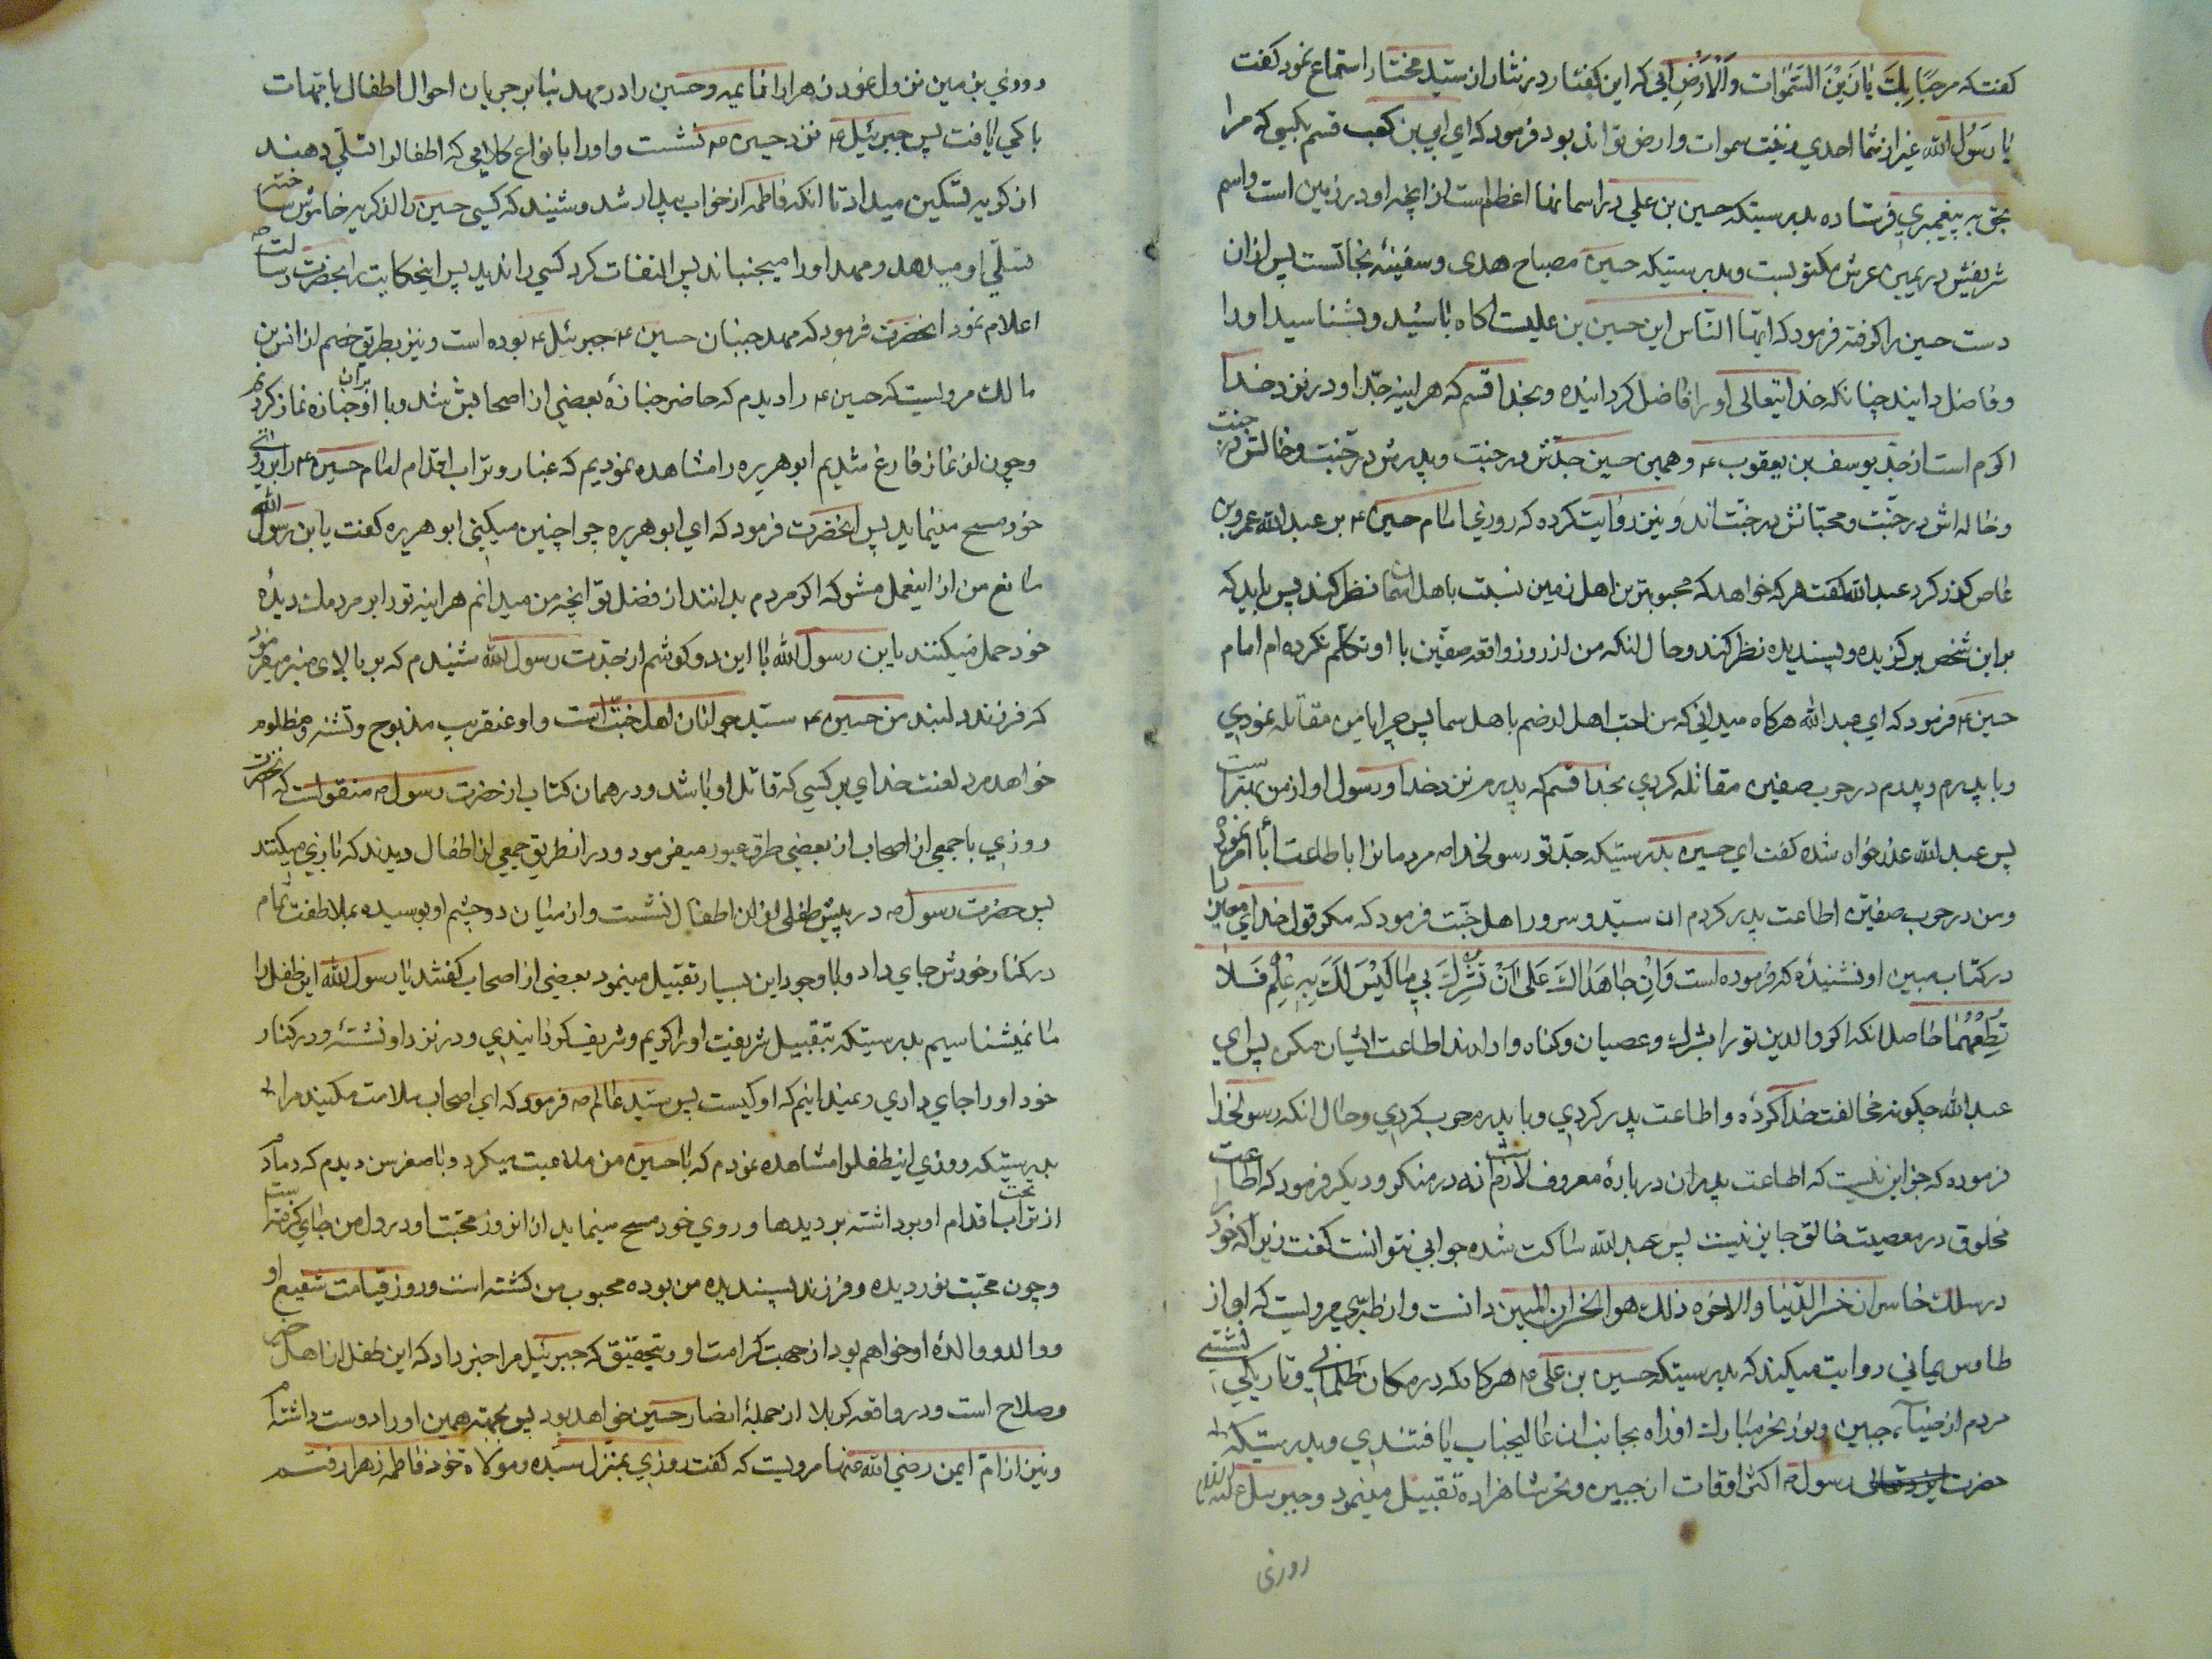 کفت که مرحبا بك یا زین السموات والارض ابی که این کفتار درر نثار از سید مختار استماع نمود کفت
یا رسول الله غیر از شما احدی زینت سموات و ارض تواند بود فرمود که ای ابی بن کعب قسم بکسی که مرا
بحق به پیغمبری فرستاده بدرستیکه حسین بن علی در اسمانها اعظم است از انچه او در زمین است و اسم
شریفش در یمین عرش مکتوبست و بدرستیکه حسین مصباح هدی و سفینه نجاتست پس از ان
دست حسین را کرفته فرمود که ایها الناس این حسین بن علیست اکاه باشید و بشناسید او را
و فاضل دانید چنانکه خدایتعالی او را فاضل کردانیده و بخدا قسم که هراینه جد او در نزد خدا
اکرم است از جد یوسف بن یعقوب ع و همین حسین جدش در جنت و پدرش در جنت و خالش در جنت
و خاله اش در جنت و محبانش در جنت اند و نیز روایت کرده که روزی امام حسین ع بر عبدالله عمرو بن
عاص کذر کرد عبدالله کفت هر که خواهد که محبوبترین اهل زمین نسبت باهل اسمان نظر کند پس باید که
بر این شخص برکزیده و پسندیده نظر کند و حال انکه من از روز واقعه صفین با او تکلم نکرده ام امام
حسین ع فرمود که ای عبدالله هرکاه میدانی که من احب اهل ارضم باهل سما پس چرا با من مقاتله نمودی
و با پدرم در حرب صفین مقاتله کردی بخدا قسم که پدرم نزد خدا و رسول او از من بهتر است
پس عبدالله عذرخواه شده کفت ای حسین بدرستیکه جد تو رسولخدا ص مردمانرا باطاعت ابا امر نموده
و من در حرب صفین اطاعت پدر کردم ان سید و سرور اهل جنت فرمود که مکر قول خدای را
در کتاب مبین او نشنیدهٔ که فرموده است وان جاهداك علی ان تشرك بی ما لیس لك به علم فلا
تطعهما حاصل انکه اکر والدین تو را بشرك و عصیان و کناه وادارند اطاعت ایشان مکن پس ای
عبدالله چکونه مخالفت خدا کردهٔ و اطاعت پدر کردی و با پدرم حرب کردی و حال انکه رسولخدا
فرموده که جز این نیست که اطاعت پدران دربارهٔ معروف لازم است نه در منکر و دیکر فرمود که اطاعت
مخلوق در معصیت خالق جایز نیست پس عبدالله ساکت شده جوابی نتوانست کفت زیرا که خود را
در سلك خاسران خسر الدنیا والاخره ذلك هو الخسران المبین دانست و از طبری مرویست که او از
طاوس یمانی روایت میکند که بدرستیکه حسین بن علی ع هرکاه که در مکان ظلمانی و تاریکی نشستی
مردم از ضیآء جبین و نور نحر مبارك او راه بجانب ان عالیجناب یافتندی و بدرستیکه
حضرت رسول ص اکثر اوقات از جبین و نحر شاهزاده تقبیل مینمود و جبرئیل علیه السلام
روزی
روزی بزمین نزول نمود زهرا را نایمه و حسین را در مهد بنابر جریان احوال اطفال با امهات
باکی یافت پس جبرئیل ع نزد حسین ع نشست و او را بانواع کلامی که اطفالرا تسلی دهند
از کریه تسکین میداد تا انکه فاطمه از خواب بیدار شد و شنید که کسی حسین را از کریه خاموش ساخته
تسلی او میدهد و مهد او را میجنباند پس التفات کرد کسی را ندید پس اینحکایت را بحضرت رسالت ص
اعلام نمود انحضرت فرمود که مهد جنبان حسین ع جبرئیل ع بوده است و نیز بطریق خصم از انس بن
مالك مرویست که حسین ع را دیدم که حاضر جنازهٔ بعضی از اصحابش شد و با او بران جنازه نماز کردیم
و چون از نماز فارغ شدیم ابو هریره را مشاهده نمودیم که غبار و تراب اقدام امام حسین ع را بر روی
خود مسح مینماید پس انحضرت فرمود که ای ابو هریره چرا چنین میکنی ابو هریره کفت یا بن رسول الله
مانع من از اینعمل مشو که اکر مردم بدانند از فضل تو انچه من میدانم هراینه تو را بر مردمك دیدهٔ
خود حمل میکنند یا بن رسول الله با این دو کوشم از جدت رسول الله شنیدم که بر بالای منبر میفرمود
که فرزند دلبند من حسین ع سید جوانان اهل جنت است و او عنقریب مذبوح و تشنه و مظلوم
خواهد مرد لعنت خدای بر کسی که قاتل او باشد و در همان کتاب از حضرت رسول ص منقولست که انحضرت
روزی با جمعی از اصحاب از بعضی طرق عبور میفرمود و در انطریق جمعی از اطفال دیدند که بازی میکنند
پس حضرت رسول ص در پیش طفلی از ان اطفال نشست و از میان دو چشم او بوسیده بملاطفت تمام
در کنار خودش جای داد و باوجود این بسیار تقبیل مینمود بعضی از اصحاب کفتند یا رسول الله این طفل را
ما نمیشناسیم بدرستیکه بتقبیل شریفت او را کریم و شریف کردانیدی و در نزد او نشسته و در کنار
خود او را جای داری و نمیدانیم که او کیست پس سید عالم ص فرمود که ای اصحاب ملامت مکنید مرا
بدرستیکه روزی اینطفلرا مشاهده نمودم که با حسین من ملاعبت میکرد و با صغر سن دیدم که دمادم
از تراب تحت اقدام او برداشته بر دیدها و روی خود مسح مینماید از انروز محبت او در دل من جای کرفته است
و چون محبت نور دیده و فرزند پسندیده من بوده محبوب من کشته است و روز قیامت شفیع او
و والد و والدهٔ او خواهم بود از جهت کرامت او و بتحقیق که جبرئیل مرا خبر داد که این طفل از اهل خیر
و صلاح است و در واقعه کربلا از جملهٔ انصار حسین خواهد بود پس بجهة همین او را دوست داشته ام
و نیز از ام ایمن رضی الله عنها مرویست که کفت روزی بمنزل سیده و مولاة خود فاطمه زهرا رفتم